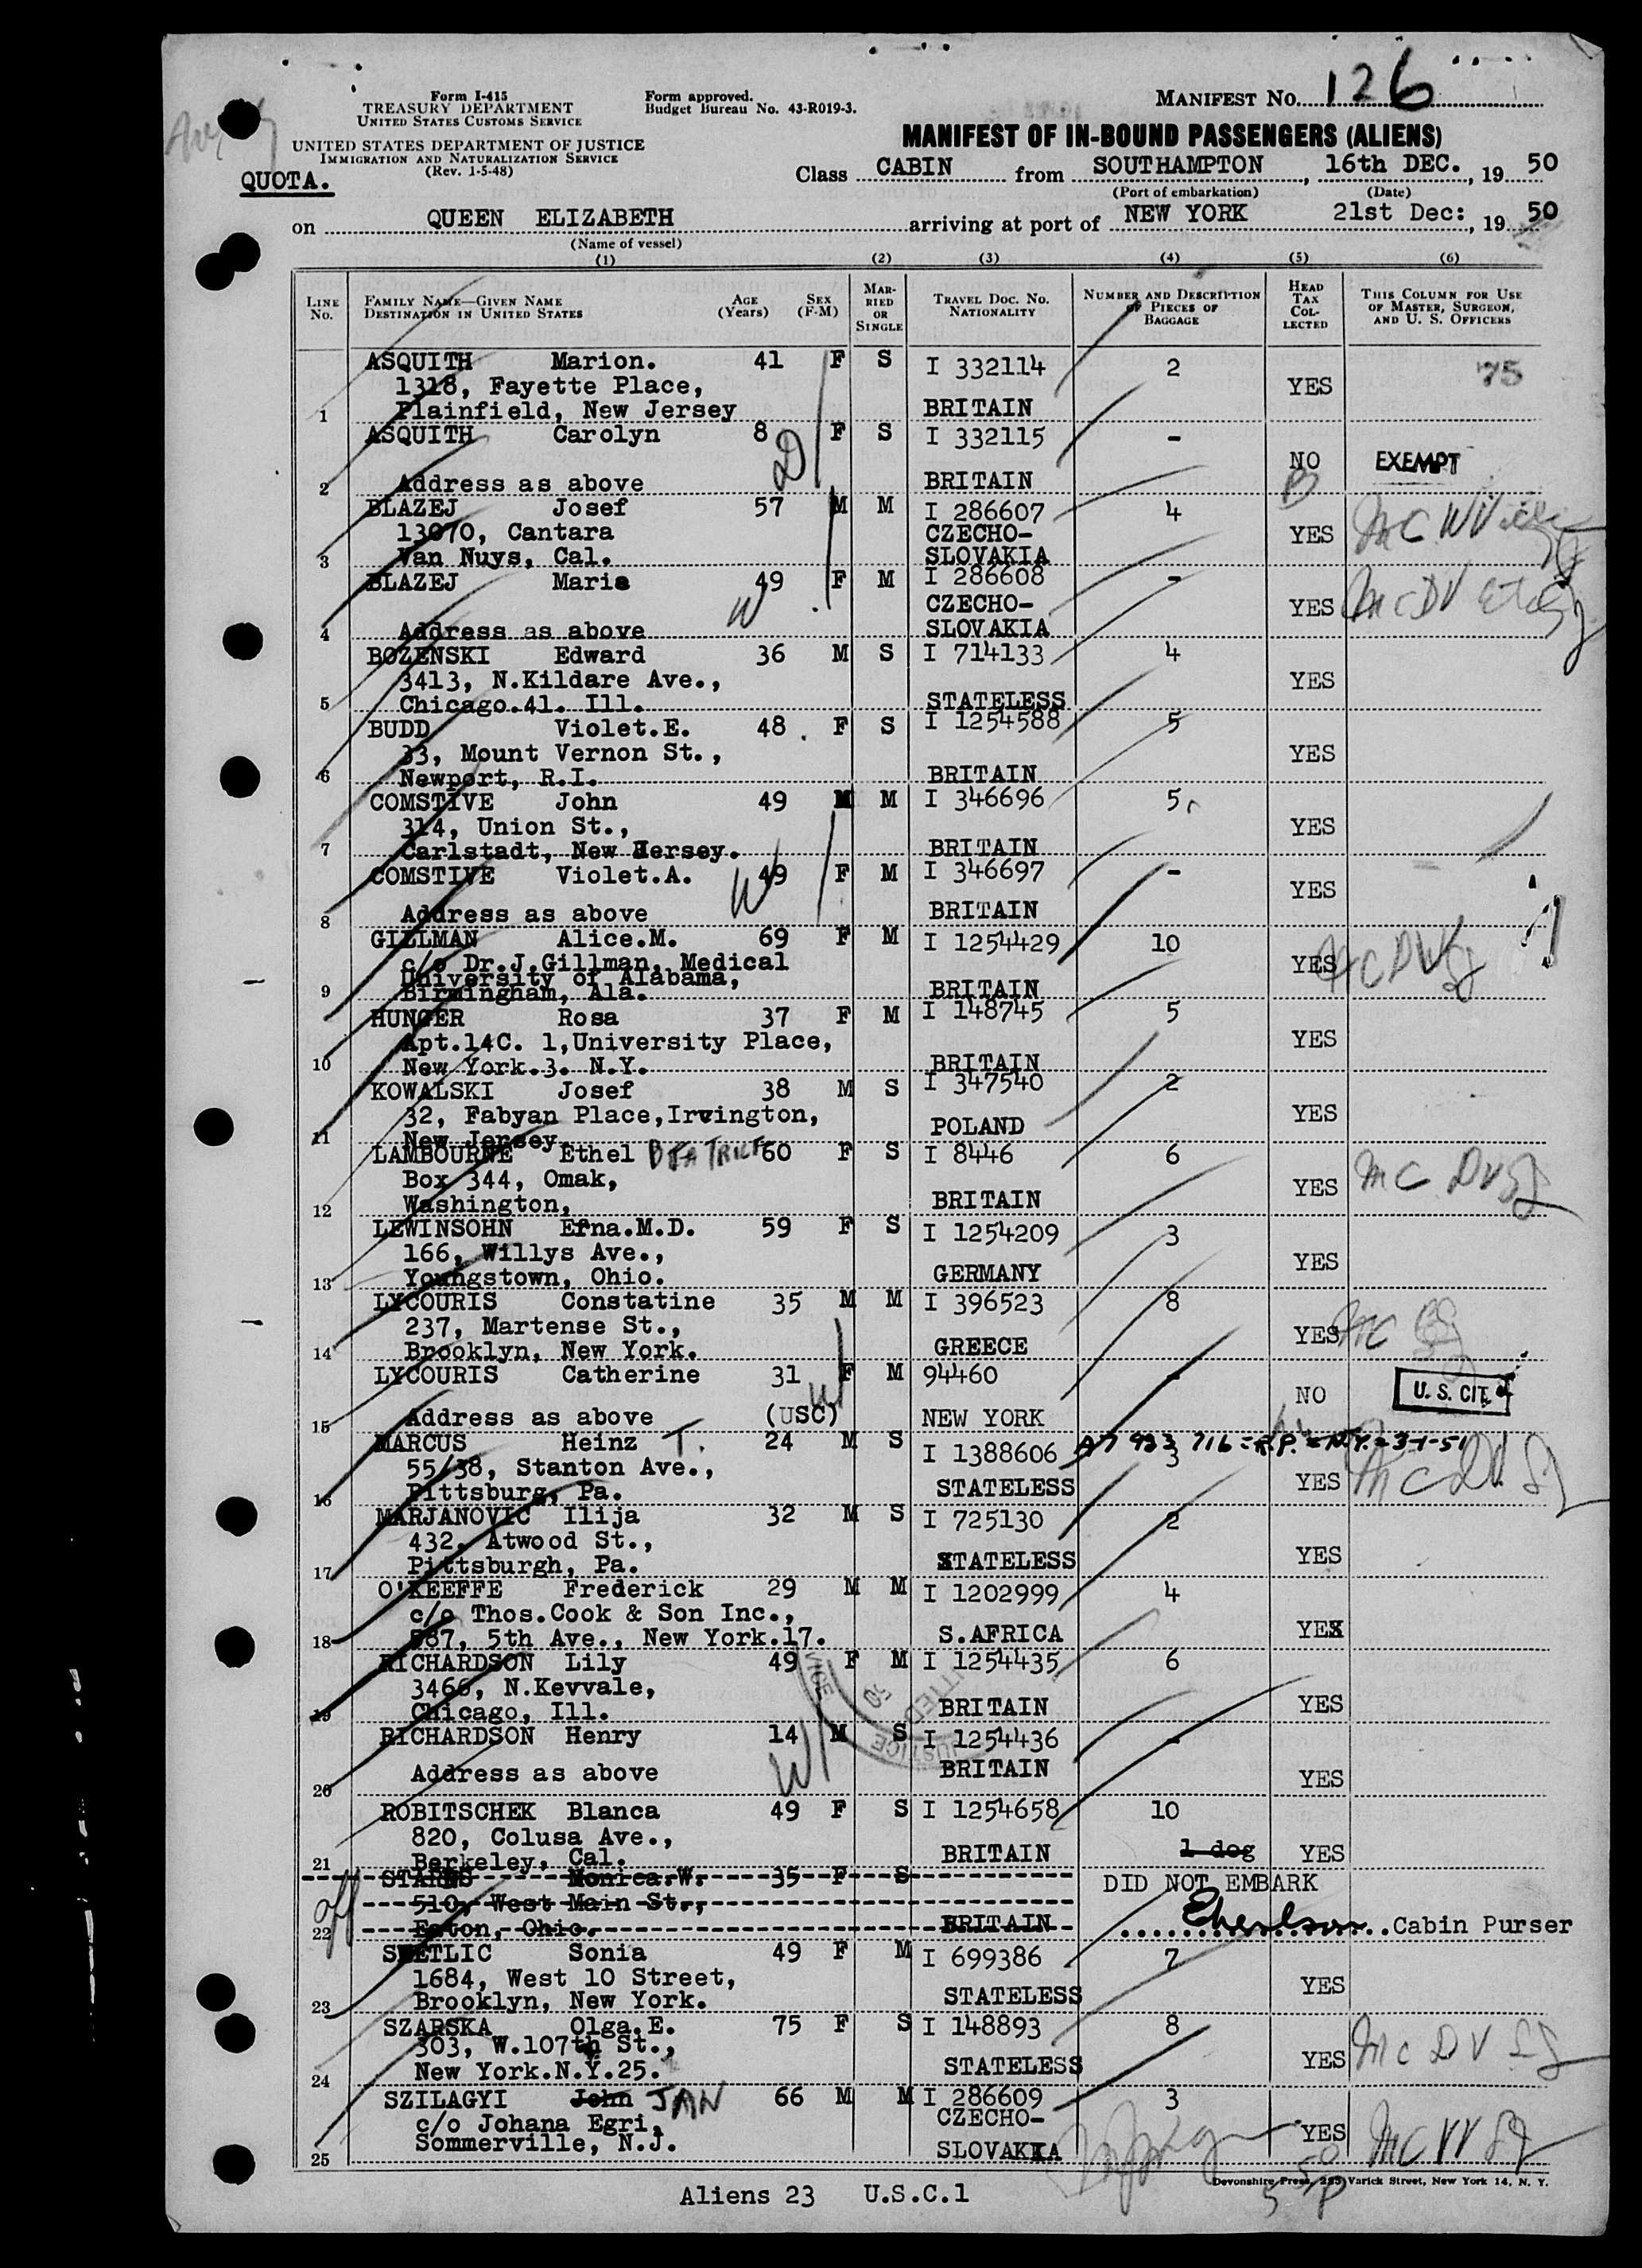 Form I-415
TREASURY DEPARTMENT
UNITED STATES CUSTOMS SERVICE
UNITED STATES DEPARTMENT OF JUSTICE
IMMIGRATION AND NATURALIZATION SERVICE
(Rev. 1-5-48)
QUOTA.
Form approved.
Budget Bureau No. 43-R019-3.
MANIFEST NO. 126
MANIFEST OF IN-BOUND PASSENGERS (ALIENS)
Class CABIN from SOUTHAMPTON, 16th DEC., 1950
(Port of embarkation) (Date)
on QUEEN ELIZABETH arriving at port of NEW YORK 21st Dec:, 1950
(Name of vessel)
(1) (2) (3) (4) (5) (6)
LINE NO. FAMILY NAME—GIVEN NAME DESTINATION IN UNITED STATES AGE (Years) SEX (F-M) MARRIED OR SINGLE TRAVEL DOC. NO. NATIONALITY NUMBER AND DESCRIPTION OF PIECES OF BAGGAGE HEAD TAX COLLECTED THIS COLUMN FOR USE OF MASTER, SURGEON, AND U. S. OFFICERS
ASQUITH Marion. 41 F S I 332114 2 75
1318, Fayette Place, YES
1 Plainfield, New Jersey BRITAIN
ASQUITH Carolyn 8 F S I 332115 -
NO EXEMPT
2 Address as above BRITAIN
BLAZEJ Josef 57 M M I 286607 4
13070, Cantara CZECHO- YES
3 Van Nuys, Cal. SLOVAKIA
BLAZEJ Maria 49 F M I 286608 -
CZECHO- YES
4 Address as above SLOVAKIA
BOZENSKI Edward 36 M S I 714133 4
3413, N.Kildare Ave., YES
5 Chicago.41. Ill. STATELESS
BUDD Violet.E. 48 F S I 1254588 5
33, Mount Vernon St., YES
6 Newport, R.I. BRITAIN
COMSTIVE John 49 M M I 346696 5
314, Union St., YES
7 Carlstadt, New Jersey. BRITAIN
COMSTIVE Violet.A. 49 F M I 346697 -
YES
8 Address as above BRITAIN
GILLMAN Alice.M. 69 F M I 1254429 10
c/o Dr.J.Gillman, Medical YES
University of Alabama,
9 Birmingham, Ala. BRITAIN
HUNGER Rosa 37 F M I 148745 5
Apt.14C. 1,University Place, YES
10 New York.3. N.Y. BRITAIN
KOWALSKI Josef 38 M S I 347540 2
32, Fabyan Place,Irvington, POLAND YES
11 New Jersey.
LAMBOURNE Ethel BEATRICE 60 F S I 8446 6
Box 344, Omak, YES
12 Washington, BRITAIN
LEWINSOHN Erna.M.D. 59 F S I 1254209 3
166, Willys Ave., YES
13 Youngstown, Ohio. GERMANY
LYCOURIS Constatine 35 M M I 396523 8
237, Martense St., YES
14 Brooklyn, New York. GREECE
LYCOURIS Catherine 31 F M 94460 -
NO U. S. CIT.
15 Address as above (USC) NEW YORK
MARCUS Heinz T. 24 M S I 1388606 A7 933 716 = R.P. = N.Y. = 3-1-51
3
55/38, Stanton Ave., YES
16 Pittsburg, Pa. STATELESS
MARJANOVIC Ilija 32 M S I 725130 2
432, Atwood St., YES
17 Pittsburgh, Pa. STATELESS
O'KEEFFE Frederick 29 M M I 1202999 4
c/o Thos.Cook & Son Inc., YES
18 587, 5th Ave., New York.17. S.AFRICA
RICHARDSON Lily 49 F M I 1254435 6
3466, N.Kevvale, YES
19 Chicago, Ill. BRITAIN
RICHARDSON Henry 14 M S I 1254436 -
20 Address as above BRITAIN YES
ROBITSCHEK Blanca 49 F S I 1254658 10
820, Colusa Ave., BRITAIN 1 dog YES
21 Berkeley, Cal.
Monica.W. 35 F S DID NOT EMBARK
510, West Main St.,
22 Eaton, Ohio. BRITAIN Cabin Purser
SVETLIC Sonia 49 F M I 699386 7
1684, West 10 Street, YES
23 Brooklyn, New York. STATELESS
SZARSKA Olga.E. 75 F S I 148893 8
303, W.107th St., YES
24 New York.N.Y.25. STATELESS
SZILAGYI John JAN 66 M M I 286609 3
c/o Johana Egri, CZECHO- YES
25 Sommerville, N.J. SLOVAKIA
Devonshire Press, 225 Varick Street, New York 14, N. Y.
Aliens 23 U.S.C.1